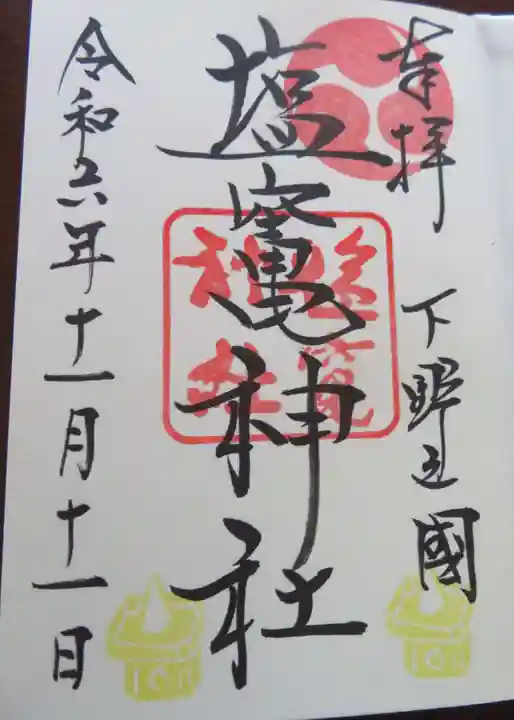 奉拝 下野之國
塩竈神社
塩竈
神社
令和六年十一月十一日